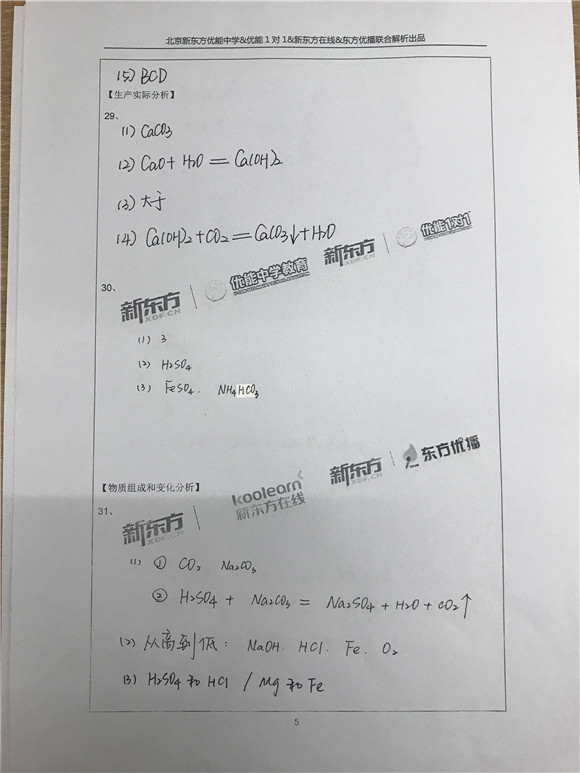 北京新东方优能中学&优能1对1&新东方在线&东方优播联合解析出品
(5) BCD
【生产实际分析】
29、
(1) CaCO3
(2) CaO + H2O = Ca(OH)2
(3) 大于
(4) Ca(OH)2 + CO2 = CaCO3↓ + H2O
新东方 XDF.CN 优能中学教育 新东方 XDF.CN 优能1对1
30、
(1) 3
(2) H2SO4
(3) FeSO4. NH4HCO3
新东方 XDF.CN 东方优播
【物质组成和变化分析】
31、
新东方 XDF.CN koolearn 新东方在线
(1) ① CO2 Na2CO3
② H2SO4 + Na2CO3 = Na2SO4 + H2O + CO2↑
(2) 从高到低: NaOH. HCl. Fe. O2
(3) H2SO4和HCl / Mg和Fe
5